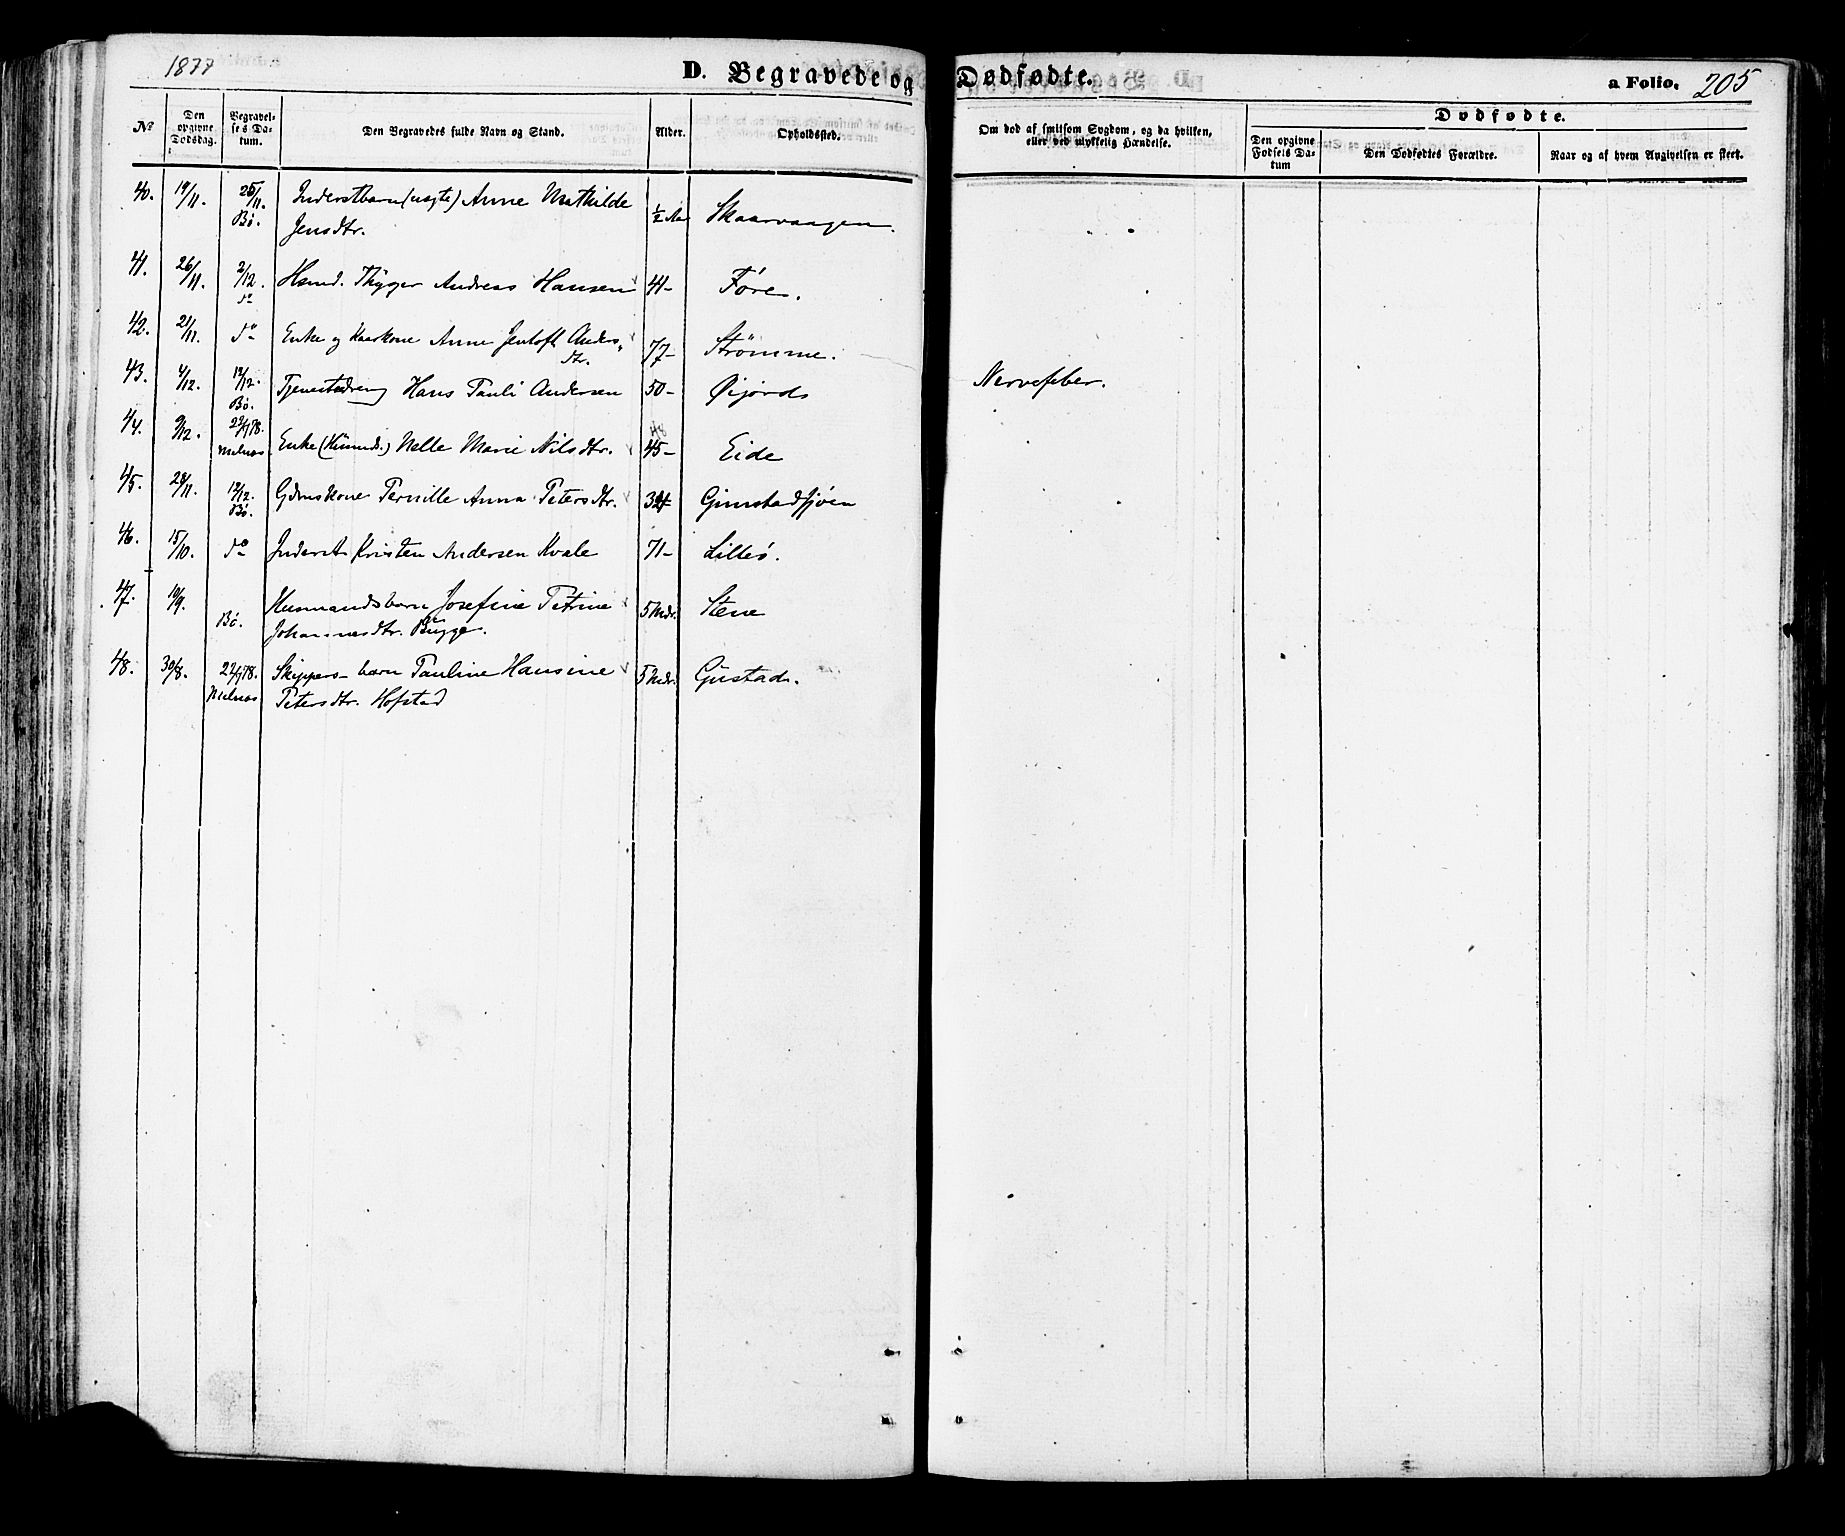 1877
D. Begravede og Dødfødte.
a Folio. 205
No
Den opgivne Dødsdag.
Begravelses Datum.
Den Begravedes fulde Navn og Stand.
Alder.
Opholdssted.
Om død af smitsom Sygdom, og da hvilken, eller ved ulykkelig Hændelse.
Dødfødte.
Den opgivne Fødsels Datum
Den Dødfødtes Forældre.
Naar og af hvem Angivelsen er skeet.
40. 19/11. 25/11. Bø. Inderstbarn (uægte) Anne Mathilde Jensdtr. 1/2 Aar Skaarvaagen.
41. 26/11. 2/12. do Hsmd. Thøger Andreas Hansen 41- Føre.
42. 21/11. do Enke og Kaarkone Anne Jentoft Andersdtr. 77- Strømme.
43. 4/12. 12/12. Bø. Tjenestedreng Hans Pauli Andersen 50- Øijord Nervefeber.
44. 9/12. 22/1 78. Melnæs Enke (Husmds.) Nelle Marie Nilsdtr. 45- Eide
45. 28/11. 12/12. Bø. Gdmskone Pernille Anna Petersdtr. Gimstadsjøen
46. 15/10. do Inderst Kristen Andersen Kvale 71- Lillеø.
47. 10/9. Bø. Husmandsbarn Josefine Petrine Johannesdtr. Bugge. 5 Mdr. Stene
48. 30/8. 22/1 78. Melnæs Skippers-barn Pauline Hansine Petersdtr. Hofstad 5 Mdr. Gustad.